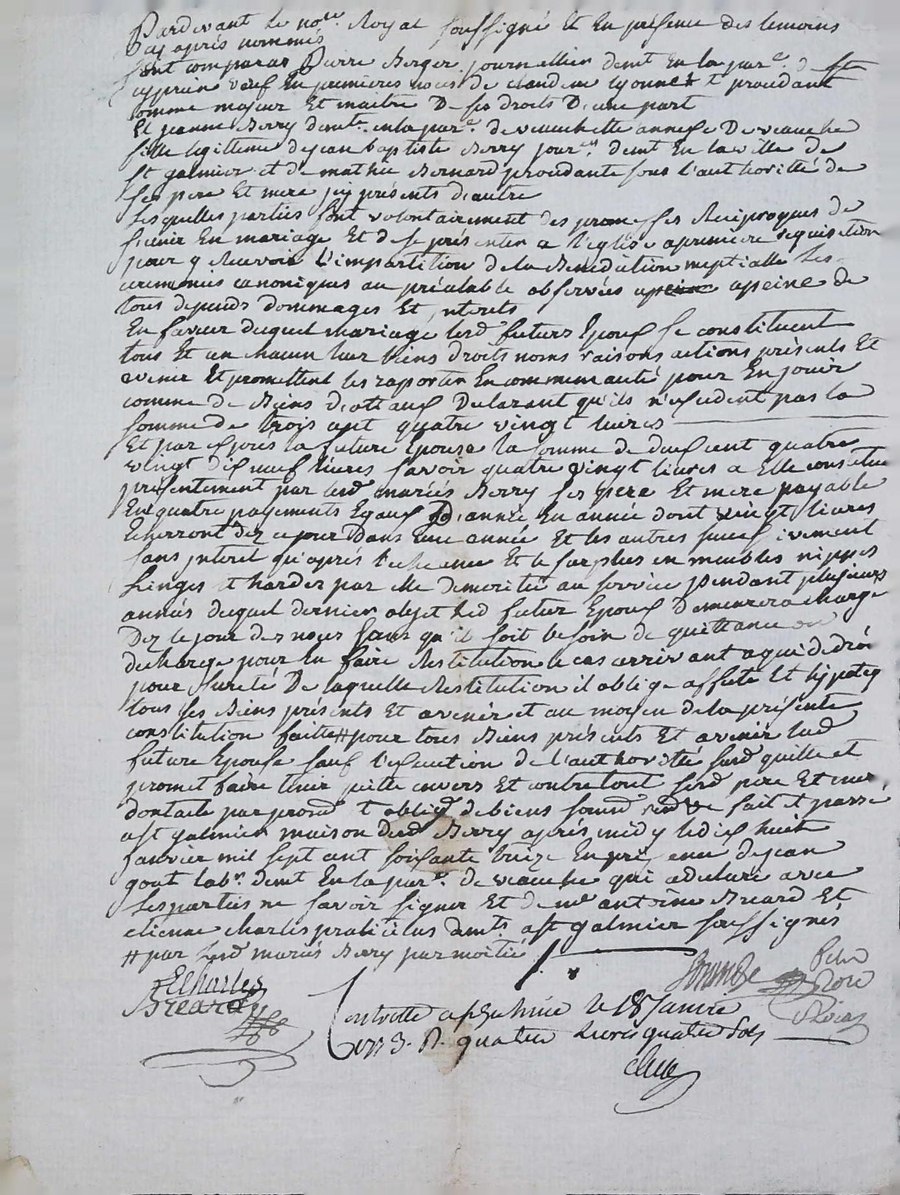 Pardevant le no.re Royal soussigné Et En présence des temoins
cy après nommés
sont comparus Pierre Berger journallier demt En la par.e de st
cyprien veuf En premieres noces de claudine Lyonnet procedant
comme majeur Et maitre De ses droits D'une part
Et jeanne Berry demte en la par.e de veauchette annexe De veauche
fille legittime de jean baptiste Berry jour.er demt En la ville de
st galmier et de mathie Bernard procedante sous l'authorité de
ses pere Et mere icy présents d'autre
Lesquelles parties font volontairement des promesses Réciproques de
s'unir En mariage Et de se présenter a l'église a premiere requisition
pour y Recevoir l'impartition de la Benediction nuptialle les
ceremonies canoniques au préalable observées apeine de
tous depends dommages Et interets
En faveur duquel mariage lesd futurs Epoux se constituent
tous Et un chacun leur biens droits noms raisons actions présents Et
avenir Et promettent les raporter En communauté pour En jouir
comme De Biens Declarant qu'ils n'excedent pas la
somme de trois cent quatre vingt livres
Et par exprès la future Epouse la somme de deux cent quatre
vingt dix neuf livres savoir quatre vingt livres a Elle constituée
présentement par lesd mariés Berry ses pere Et mere payable
En quatre payements Egaux d'année En année dont vingt livres
Echerront dez ce jour Dans une année Et les autres successivement
sans interet qu'après l'echeance Et le surplus en meubles nippes
Linges et hardes par elle demeritée au service pendant plusieurs
années duquel dernier objet led futur Epoux Demeurera chargé
Dez le jour des noces sans qu'il soit besoin de quittance ou
decharge pour En faire Restitution le cas arrivant a qui de droit
pour sureté De laquelle Restitution il oblige affecte Et hypoteq
tous ses Biens présents Et avenir et au moyen de la présente
constitution faitte # pour tous Biens présents Et avenir lad
future Epouse sous l'execution de l'authorité susd quitte et
promet faire tenir quitte envers Et contre tout sesd pere Et mere
dont acte par prom.d et oblig.d de biens soumd renonce fait et passé
a st galmier maison desd Berry après midy le dix huit
Janvier mil sept cent soixante treize En présence de jean
gout lab.r demt En la par.e de veauche qui a declaré avec
les parties ne savoir signer Et de me antoine Bréard Et
etienne Charles praticiens demts a st galmier soussignés
# par lesd mariés Berry par moitié
E Charles
Bréard
Controllé a st galmier le 18e Janvier
1773. R. quatre Livres quatre sols